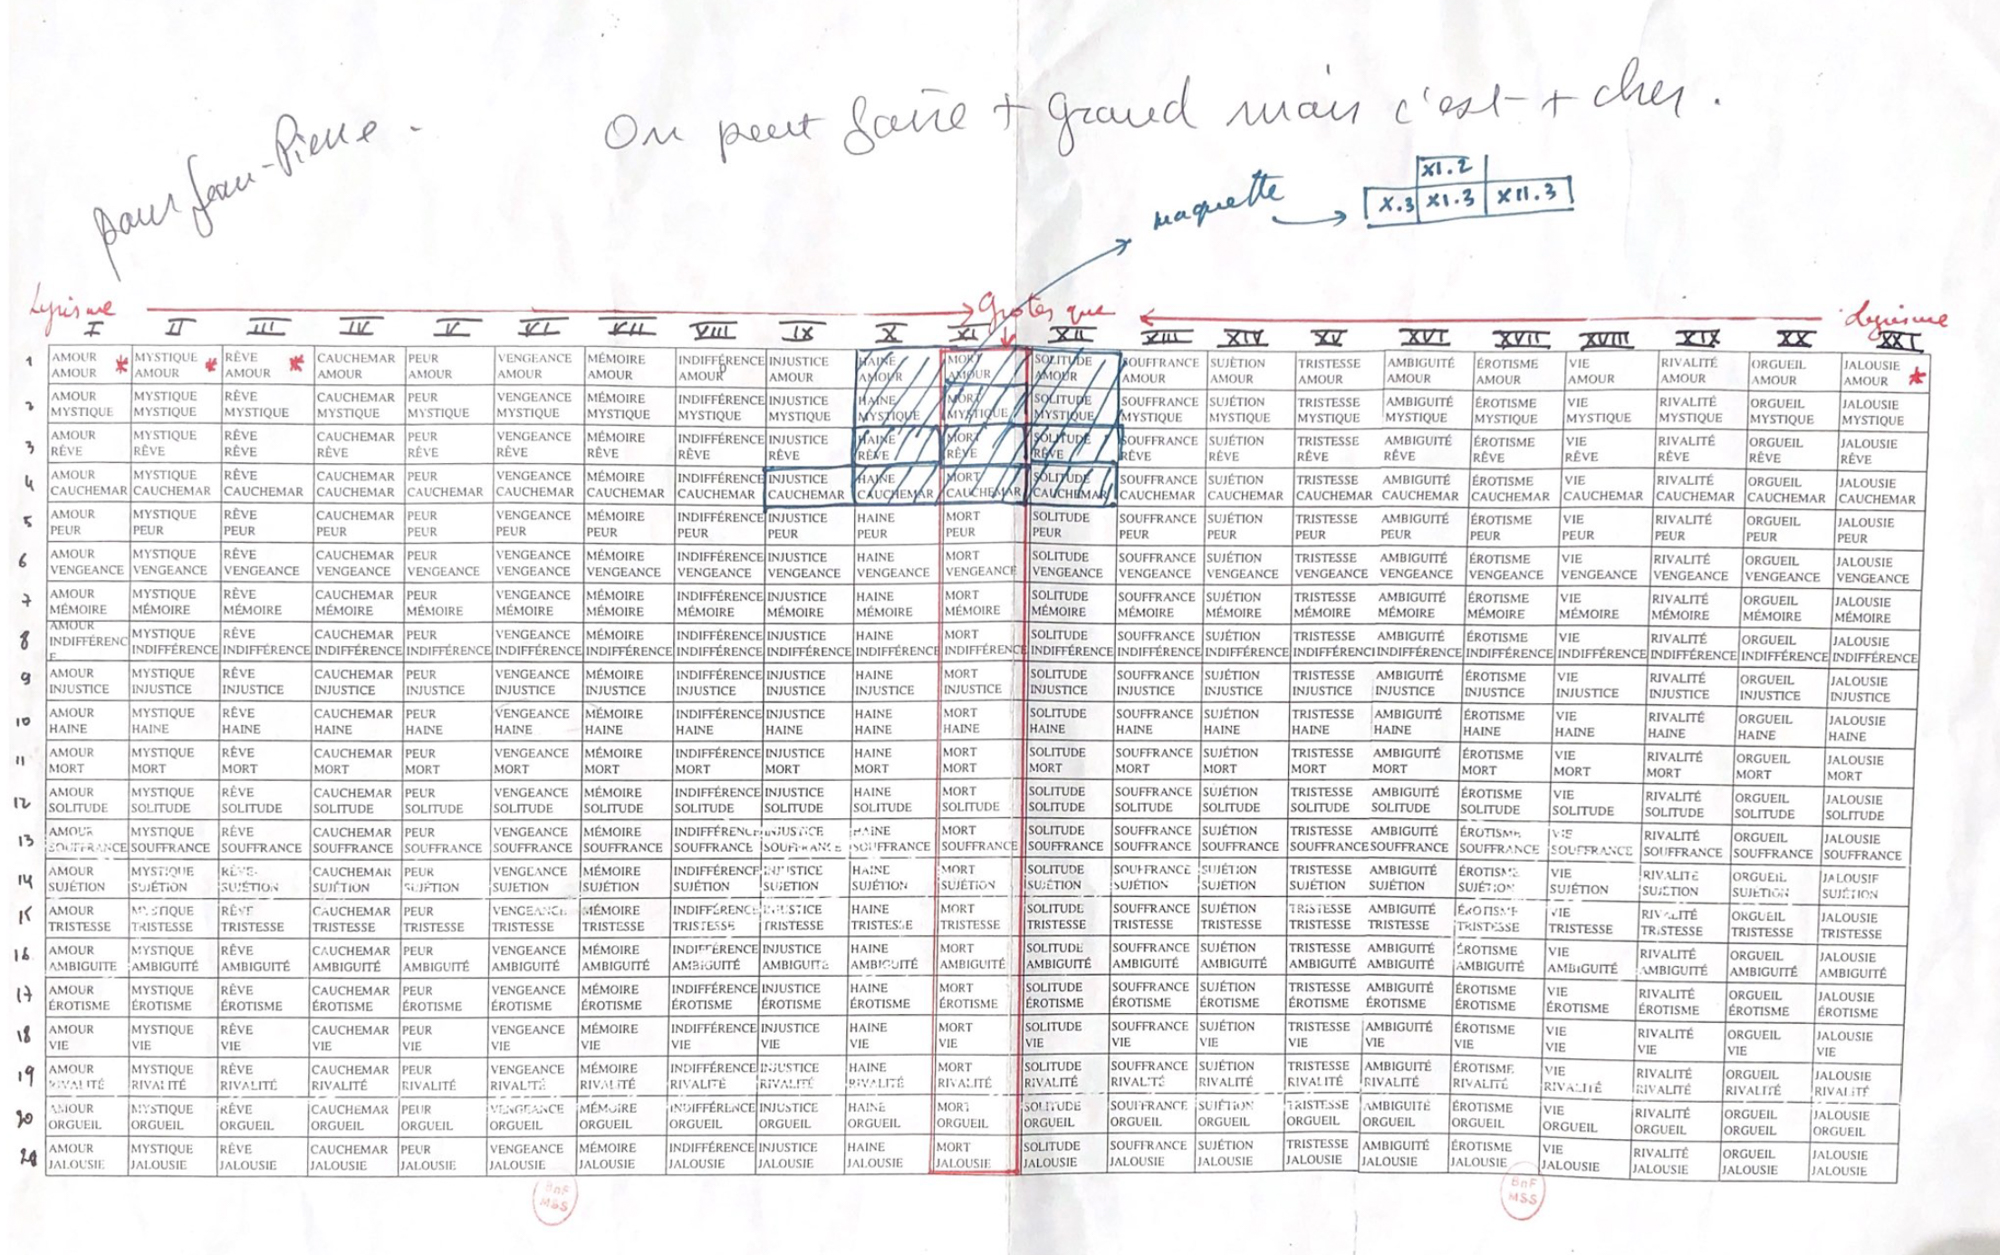 pour Jean-Pierre.
On peut faire + grand mais c'est + cher.
maquette
XI.2
X.3 XI.3 XII.3
Lyrisme Grotesque Lyrisme
I II III IV V VI VII VIII IX X XI XII XIII XIV XV XVI XVII XVIII XIX XX XXI
1 AMOUR MYSTIQUE RÊVE CAUCHEMAR PEUR VENGEANCE MÉMOIRE INDIFFÉRENCE INJUSTICE HAINE MORT SOLITUDE SOUFFRANCE SUJÉTION TRISTESSE AMBIGUITÉ ÉROTISME VIE RIVALITÉ ORGUEIL JALOUSIE
AMOUR * AMOUR * AMOUR * AMOUR AMOUR AMOUR AMOUR AMOUR AMOUR AMOUR AMOUR AMOUR AMOUR AMOUR AMOUR AMOUR AMOUR AMOUR AMOUR AMOUR AMOUR *
2 AMOUR MYSTIQUE RÊVE CAUCHEMAR PEUR VENGEANCE MÉMOIRE INDIFFÉRENCE INJUSTICE HAINE MORT SOLITUDE SOUFFRANCE SUJÉTION TRISTESSE AMBIGUITÉ ÉROTISME VIE RIVALITÉ ORGUEIL JALOUSIE
MYSTIQUE MYSTIQUE MYSTIQUE MYSTIQUE MYSTIQUE MYSTIQUE MYSTIQUE MYSTIQUE MYSTIQUE MYSTIQUE MYSTIQUE MYSTIQUE MYSTIQUE MYSTIQUE MYSTIQUE MYSTIQUE MYSTIQUE MYSTIQUE MYSTIQUE MYSTIQUE MYSTIQUE
3 AMOUR MYSTIQUE RÊVE CAUCHEMAR PEUR VENGEANCE MÉMOIRE INDIFFÉRENCE INJUSTICE HAINE MORT SOLITUDE SOUFFRANCE SUJÉTION TRISTESSE AMBIGUITÉ ÉROTISME VIE RIVALITÉ ORGUEIL JALOUSIE
RÊVE RÊVE RÊVE RÊVE RÊVE RÊVE RÊVE RÊVE RÊVE RÊVE RÊVE RÊVE RÊVE RÊVE RÊVE RÊVE RÊVE RÊVE RÊVE RÊVE RÊVE
4 AMOUR MYSTIQUE RÊVE CAUCHEMAR PEUR VENGEANCE MÉMOIRE INDIFFÉRENCE INJUSTICE HAINE MORT SOLITUDE SOUFFRANCE SUJÉTION TRISTESSE AMBIGUITÉ ÉROTISME VIE RIVALITÉ ORGUEIL JALOUSIE
CAUCHEMAR CAUCHEMAR CAUCHEMAR CAUCHEMAR CAUCHEMAR CAUCHEMAR CAUCHEMAR CAUCHEMAR CAUCHEMAR CAUCHEMAR CAUCHEMAR CAUCHEMAR CAUCHEMAR CAUCHEMAR CAUCHEMAR CAUCHEMAR CAUCHEMAR CAUCHEMAR CAUCHEMAR CAUCHEMAR CAUCHEMAR
5 AMOUR MYSTIQUE RÊVE CAUCHEMAR PEUR VENGEANCE MÉMOIRE INDIFFÉRENCE INJUSTICE HAINE MORT SOLITUDE SOUFFRANCE SUJÉTION TRISTESSE AMBIGUITÉ ÉROTISME VIE RIVALITÉ ORGUEIL JALOUSIE
PEUR PEUR PEUR PEUR PEUR PEUR PEUR PEUR PEUR PEUR PEUR PEUR PEUR PEUR PEUR PEUR PEUR PEUR PEUR PEUR PEUR
6 AMOUR MYSTIQUE RÊVE CAUCHEMAR PEUR VENGEANCE MÉMOIRE INDIFFÉRENCE INJUSTICE HAINE MORT SOLITUDE SOUFFRANCE SUJÉTION TRISTESSE AMBIGUITÉ ÉROTISME VIE RIVALITÉ ORGUEIL JALOUSIE
VENGEANCE VENGEANCE VENGEANCE VENGEANCE VENGEANCE VENGEANCE VENGEANCE VENGEANCE VENGEANCE VENGEANCE VENGEANCE VENGEANCE VENGEANCE VENGEANCE VENGEANCE VENGEANCE VENGEANCE VENGEANCE VENGEANCE VENGEANCE VENGEANCE
7 AMOUR MYSTIQUE RÊVE CAUCHEMAR PEUR VENGEANCE MÉMOIRE INDIFFÉRENCE INJUSTICE HAINE MORT SOLITUDE SOUFFRANCE SUJÉTION TRISTESSE AMBIGUITÉ ÉROTISME VIE RIVALITÉ ORGUEIL JALOUSIE
MÉMOIRE MÉMOIRE MÉMOIRE MÉMOIRE MÉMOIRE MÉMOIRE MÉMOIRE MÉMOIRE MÉMOIRE MÉMOIRE MÉMOIRE MÉMOIRE MÉMOIRE MÉMOIRE MÉMOIRE MÉMOIRE MÉMOIRE MÉMOIRE MÉMOIRE MÉMOIRE MÉMOIRE
8 AMOUR MYSTIQUE RÊVE CAUCHEMAR PEUR VENGEANCE MÉMOIRE INDIFFÉRENCE INJUSTICE HAINE MORT SOLITUDE SOUFFRANCE SUJÉTION TRISTESSE AMBIGUITÉ ÉROTISME VIE RIVALITÉ ORGUEIL JALOUSIE
INDIFFÉRENC INDIFFÉRENCE INDIFFÉRENCE INDIFFÉRENCE INDIFFÉRENCE INDIFFÉRENCE INDIFFÉRENCE INDIFFÉRENCE INDIFFÉRENCE INDIFFÉRENCE INDIFFÉRENCE INDIFFÉRENCE INDIFFÉRENCE INDIFFÉRENCE INDIFFÉRENCE INDIFFÉRENCE INDIFFÉRENCE INDIFFÉRENCE INDIFFÉRENCE INDIFFÉRENCE INDIFFÉRENCE
E
9 AMOUR MYSTIQUE RÊVE CAUCHEMAR PEUR VENGEANCE MÉMOIRE INDIFFÉRENCE INJUSTICE HAINE MORT SOLITUDE SOUFFRANCE SUJÉTION TRISTESSE AMBIGUITÉ ÉROTISME VIE RIVALITÉ ORGUEIL JALOUSIE
INJUSTICE INJUSTICE INJUSTICE INJUSTICE INJUSTICE INJUSTICE INJUSTICE INJUSTICE INJUSTICE INJUSTICE INJUSTICE INJUSTICE INJUSTICE INJUSTICE INJUSTICE INJUSTICE INJUSTICE INJUSTICE INJUSTICE INJUSTICE INJUSTICE
10 AMOUR MYSTIQUE RÊVE CAUCHEMAR PEUR VENGEANCE MÉMOIRE INDIFFÉRENCE INJUSTICE HAINE MORT SOLITUDE SOUFFRANCE SUJÉTION TRISTESSE AMBIGUITÉ ÉROTISME VIE RIVALITÉ ORGUEIL JALOUSIE
HAINE HAINE HAINE HAINE HAINE HAINE HAINE HAINE HAINE HAINE HAINE HAINE HAINE HAINE HAINE HAINE HAINE HAINE HAINE HAINE HAINE
11 AMOUR MYSTIQUE RÊVE CAUCHEMAR PEUR VENGEANCE MÉMOIRE INDIFFÉRENCE INJUSTICE HAINE MORT SOLITUDE SOUFFRANCE SUJÉTION TRISTESSE AMBIGUITÉ ÉROTISME VIE RIVALITÉ ORGUEIL JALOUSIE
MORT MORT MORT MORT MORT MORT MORT MORT MORT MORT MORT MORT MORT MORT MORT MORT MORT MORT MORT MORT MORT
12 AMOUR MYSTIQUE RÊVE CAUCHEMAR PEUR VENGEANCE MÉMOIRE INDIFFÉRENCE INJUSTICE HAINE MORT SOLITUDE SOUFFRANCE SUJÉTION TRISTESSE AMBIGUITÉ ÉROTISME VIE RIVALITÉ ORGUEIL JALOUSIE
SOLITUDE SOLITUDE SOLITUDE SOLITUDE SOLITUDE SOLITUDE SOLITUDE SOLITUDE SOLITUDE SOLITUDE SOLITUDE SOLITUDE SOLITUDE SOLITUDE SOLITUDE SOLITUDE SOLITUDE SOLITUDE SOLITUDE SOLITUDE SOLITUDE
13 AMOUR MYSTIQUE RÊVE CAUCHEMAR PEUR VENGEANCE MÉMOIRE INDIFFÉRENCE INJUSTICE HAINE MORT SOLITUDE SOUFFRANCE SUJÉTION TRISTESSE AMBIGUITÉ ÉROTISME VIE RIVALITÉ ORGUEIL JALOUSIE
SOUFFRANCE SOUFFRANCE SOUFFRANCE SOUFFRANCE SOUFFRANCE SOUFFRANCE SOUFFRANCE SOUFFRANCE SOUFFRANCE SOUFFRANCE SOUFFRANCE SOUFFRANCE SOUFFRANCE SOUFFRANCE SOUFFRANCE SOUFFRANCE SOUFFRANCE SOUFFRANCE SOUFFRANCE SOUFFRANCE SOUFFRANCE
14 AMOUR MYSTIQUE RÊVE CAUCHEMAR PEUR VENGEANCE MÉMOIRE INDIFFÉRENCE INJUSTICE HAINE MORT SOLITUDE SOUFFRANCE SUJÉTION TRISTESSE AMBIGUITÉ ÉROTISME VIE RIVALITÉ ORGUEIL JALOUSIE
SUJÉTION SUJÉTION SUJÉTION SUJÉTION SUJÉTION SUJÉTION SUJÉTION SUJÉTION SUJÉTION SUJÉTION SUJÉTION SUJÉTION SUJÉTION SUJÉTION SUJÉTION SUJÉTION SUJÉTION SUJÉTION SUJÉTION SUJÉTION SUJÉTION
15 AMOUR MYSTIQUE RÊVE CAUCHEMAR PEUR VENGEANCE MÉMOIRE INDIFFÉRENCE INJUSTICE HAINE MORT SOLITUDE SOUFFRANCE SUJÉTION TRISTESSE AMBIGUITÉ ÉROTISME VIE RIVALITÉ ORGUEIL JALOUSIE
TRISTESSE TRISTESSE TRISTESSE TRISTESSE TRISTESSE TRISTESSE TRISTESSE TRISTESSE TRISTESSE TRISTESSE TRISTESSE TRISTESSE TRISTESSE TRISTESSE TRISTESSE TRISTESSE TRISTESSE TRISTESSE TRISTESSE TRISTESSE TRISTESSE
16 AMOUR MYSTIQUE RÊVE CAUCHEMAR PEUR VENGEANCE MÉMOIRE INDIFFÉRENCE INJUSTICE HAINE MORT SOLITUDE SOUFFRANCE SUJÉTION TRISTESSE AMBIGUITÉ ÉROTISME VIE RIVALITÉ ORGUEIL JALOUSIE
AMBIGUITE AMBIGUITÉ AMBIGUITÉ AMBIGUITÉ AMBIGUITÉ AMBIGUITÉ AMBIGUITÉ AMBIGUITÉ AMBIGUITÉ AMBIGUITÉ AMBIGUITÉ AMBIGUITÉ AMBIGUITÉ AMBIGUITÉ AMBIGUITÉ AMBIGUITÉ AMBIGUITÉ AMBIGUITÉ AMBIGUITÉ AMBIGUITÉ AMBIGUITÉ
17 AMOUR MYSTIQUE RÊVE CAUCHEMAR PEUR VENGEANCE MÉMOIRE INDIFFÉRENCE INJUSTICE HAINE MORT SOLITUDE SOUFFRANCE SUJÉTION TRISTESSE AMBIGUITÉ ÉROTISME VIE RIVALITÉ ORGUEIL JALOUSIE
ÉROTISME ÉROTISME ÉROTISME ÉROTISME ÉROTISME ÉROTISME ÉROTISME ÉROTISME ÉROTISME ÉROTISME ÉROTISME ÉROTISME ÉROTISME ÉROTISME ÉROTISME ÉROTISME ÉROTISME ÉROTISME ÉROTISME ÉROTISME ÉROTISME
18 AMOUR MYSTIQUE RÊVE CAUCHEMAR PEUR VENGEANCE MÉMOIRE INDIFFÉRENCE INJUSTICE HAINE MORT SOLITUDE SOUFFRANCE SUJÉTION TRISTESSE AMBIGUITÉ ÉROTISME VIE RIVALITÉ ORGUEIL JALOUSIE
VIE VIE VIE VIE VIE VIE VIE VIE VIE VIE VIE VIE VIE VIE VIE VIE VIE VIE VIE VIE VIE
19 AMOUR MYSTIQUE RÊVE CAUCHEMAR PEUR VENGEANCE MÉMOIRE INDIFFÉRENCE INJUSTICE HAINE MORT SOLITUDE SOUFFRANCE SUJÉTION TRISTESSE AMBIGUITÉ ÉROTISME VIE RIVALITÉ ORGUEIL JALOUSIE
RIVALITÉ RIVALITÉ RIVALITÉ RIVALITÉ RIVALITÉ RIVALITÉ RIVALITÉ RIVALITÉ RIVALITÉ RIVALITÉ RIVALITÉ RIVALITÉ RIVALITÉ RIVALITÉ RIVALITÉ RIVALITÉ RIVALITÉ RIVALITÉ RIVALITÉ RIVALITÉ RIVALITÉ
20 AMOUR MYSTIQUE RÊVE CAUCHEMAR PEUR VENGEANCE MÉMOIRE INDIFFÉRENCE INJUSTICE HAINE MORT SOLITUDE SOUFFRANCE SUJÉTION TRISTESSE AMBIGUITÉ ÉROTISME VIE RIVALITÉ ORGUEIL JALOUSIE
ORGUEIL ORGUEIL ORGUEIL ORGUEIL ORGUEIL ORGUEIL ORGUEIL ORGUEIL ORGUEIL ORGUEIL ORGUEIL ORGUEIL ORGUEIL ORGUEIL ORGUEIL ORGUEIL ORGUEIL ORGUEIL ORGUEIL ORGUEIL ORGUEIL
21 AMOUR MYSTIQUE RÊVE CAUCHEMAR PEUR VENGEANCE MÉMOIRE INDIFFÉRENCE INJUSTICE HAINE MORT SOLITUDE SOUFFRANCE SUJÉTION TRISTESSE AMBIGUITÉ ÉROTISME VIE RIVALITÉ ORGUEIL JALOUSIE
JALOUSIE JALOUSIE JALOUSIE JALOUSIE JALOUSIE JALOUSIE JALOUSIE JALOUSIE JALOUSIE JALOUSIE JALOUSIE JALOUSIE JALOUSIE JALOUSIE JALOUSIE JALOUSIE JALOUSIE JALOUSIE JALOUSIE JALOUSIE JALOUSIE
BnF
MSS
BnF
MSS